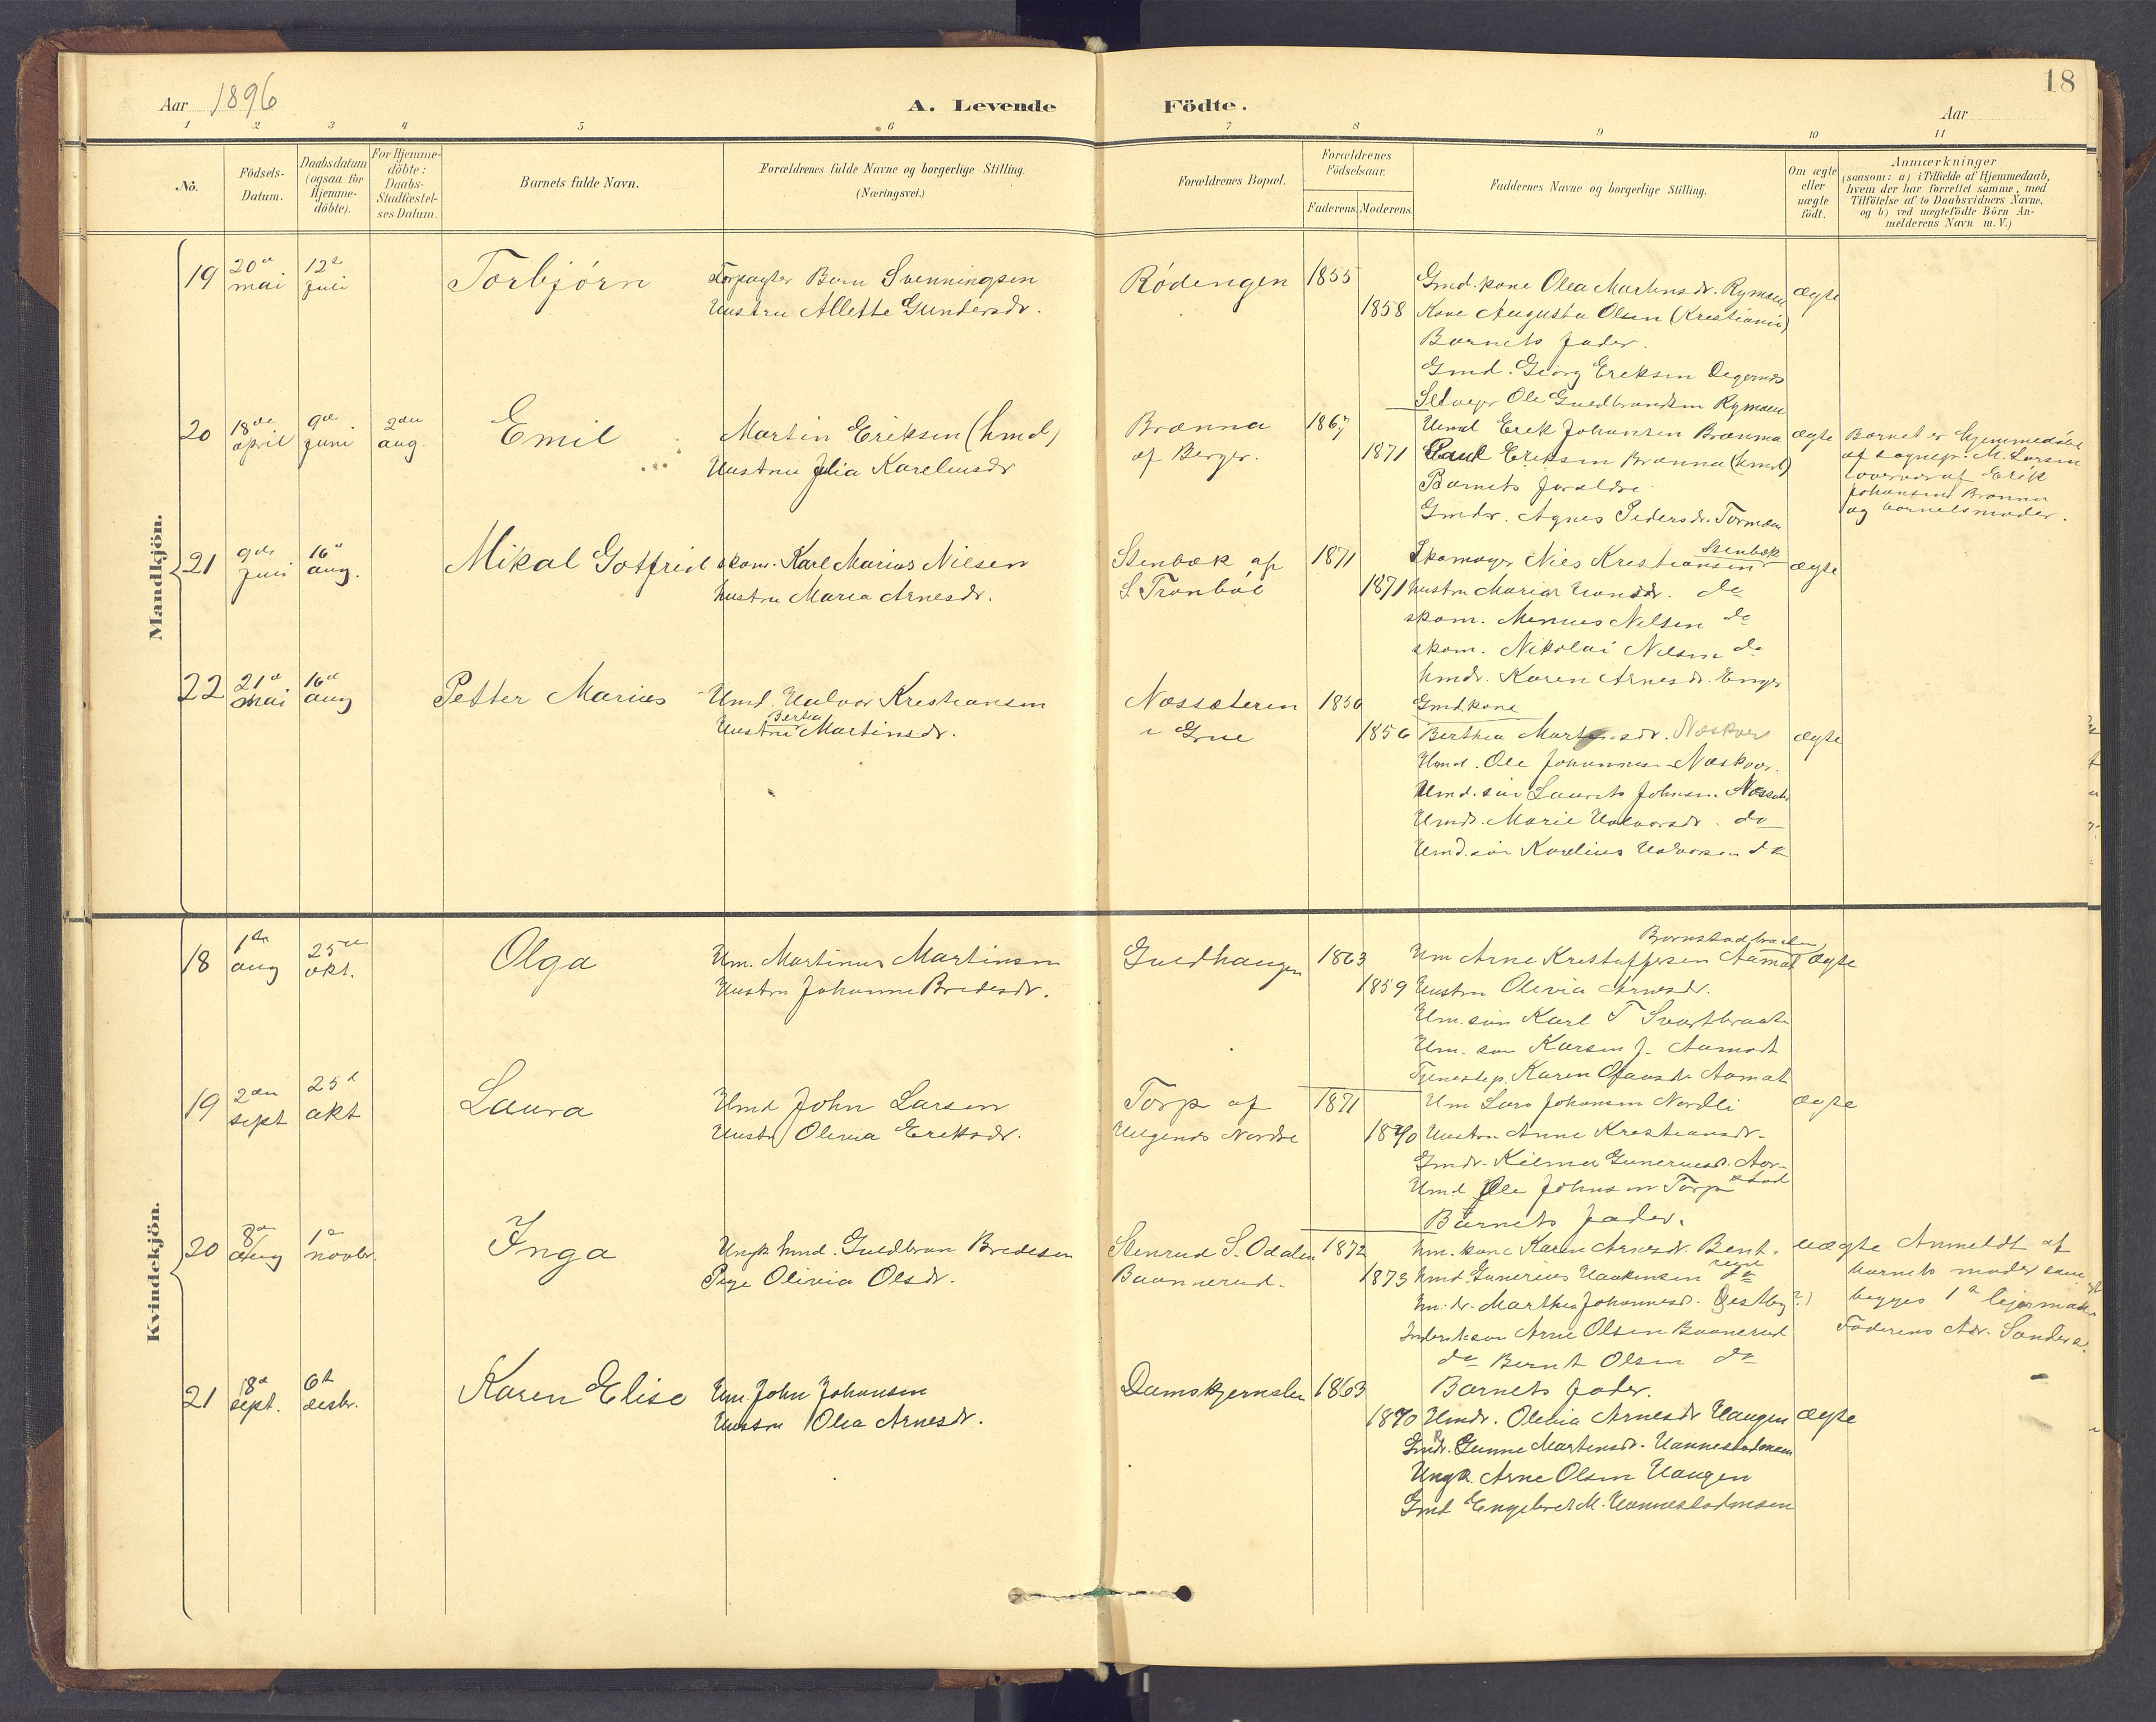 18
Aar 1896
A. Levende Födte.
Aar
1 2 3 4 5 6 7 8 9 10 11
No.
Födsels-
Datum.
Daabsdatum
(ogsaa for
Hjemme-
döbte).
For Hjemme-
döbte:
Daabs-
Stadfæstel-
ses Datum.
Barnets fulde Navn.
Forældrenes fulde Navne og borgerlige Stilling.
(Næringsvei.)
Forældrenes Bopæl.
Forældrenes
Födselsaar.
Faderens. Moderens.
Faddernes Navne og borgerlige Stilling.
Om ægte
eller
uægte
födt.
Anmærkninger
(saasom: a) i Tilfælde af Hjemmedaab,
hvem der har forrettet samme, med
Tilföielse af to Daabsvidners Navne,
og b) ved uægtefödte Börn An-
melderens Navn m.V.)
Mandkjön.
19
20de
mai
12te
juli
Torbjörn
Forpagter Bern Svenningsen
Hustru Allette Gundersdr.
Rödengen
1855
1858
Gmd. kone Olea Martinsdr. Rymoen
Kone Augusta Olsen (Kristiania)
Barnets fader.
Gmd. Georg Eriksen Degernes
Selveier Ole Guldbrandsen Rymoen
ægte
20
18de
april
9de
juni
2den
aug.
Emil
Martin Eriksen (hmd)
Hustru Julia Kareliusdr
Brænna
af Berger.
1867
1871
Hmd Erik Johansen Brænna
Paul Eriksen Brænna (hmd)
Barnets forældre
Gmdr. Agnes Pedersdr. Tormoen
ægte
Barnet er hjemmedöbt
af sognepr. M. Larsen
i overvær af Erik
Johansen Brænna
og barnets moder.
21
9de
juni
16de
aug.
Mikal Gotfried
skom. Karl Marius Nilsen
hustru Maria Arnesdr.
Stenbæk af
S. Tranböl
1871
1871
Stenbæk
Skomager Nils Kristiansen
hustru Maria Hansdr. do
skom. Menius Nilsen do
skom. Nikolai Nilsen do
hmdr. Karen Arnesdr. Enger
ægte
22
21de
mai
16de
aug
Petter Marius
Hmd. Halvor Kristiansen
Bertha
Hustru Martinsdr.
Næssæteren
i Grue
1850
1856
Gmdkone
Berthea Martinsdr. Næskver
Hmd. Ole Johannesen Næskver.
Hmd. sön Laurits Johnsen. Næssæt
Hmdr. Marie Halvorsdr. do
Hmd. sön Karelius Halvorsen do
ægte
Kvindekjön.
18
1ste
aug
25de
okt.
Olga
Hm. Martinus Martinsen
Hustru Johanne Bredesdr.
Guldhaugen
1863
1859
Bornstadbraaten
Hm Arne Kristoffersen Aamot
Hustru Olivia Arnesdr.
Hm. sön Karl T Svartbraaten
Hm. sön Karsen J. Aamodt
Tjenestep. Karen Olausdr. Aamot
ægte
19
2den
sept
25d
okt
Laura
Hmd John Larsen
Hustr Olivia Eriksdr.
Torp af
Ulgenes Nordre
1871
1870
Hm Lars Johansen Nordli
Hustru Anne Kristiansdr.
Gmdr. Kilma Gunerusdr. Aor-
stad
Hmd Ole Johnsen Torp
Barnets fader.
ægte
20
8de
aug
1ste
novbr.
Inga
Ungk hmd. Guldbran Bredesen
Pige Olivia Olsdr.
Stenrud S. Odalen
Baannerud.
1872
1873
hm. kone Karen Arnesdr. Bent-
rene
hmd. Gunerius Haakensen do
hm. dr. Marthea Johannesdr. Gestby (?)
Inderstsön Arne Olsen Baanerud
do Bernt Olsen do
Barnets fader.
uægte
Anmeldt af
barnets moder som
begges 1ste leiermaal
Faderens Adr. Sander st.
21
18de
sept.
6te
desbr.
Karen Elise
Hm. John Johansen
Hustru Olea Arnesdr.
Damskjernslien
1863
1870
Hmdr. Olivia Arnesdr Haugen
Gmdr. Gunne Martinsdr. Hannestadmoen
Ungk. Arne Olsen Haugen
Gmd Engebret M. Hannestadmoen
ægte